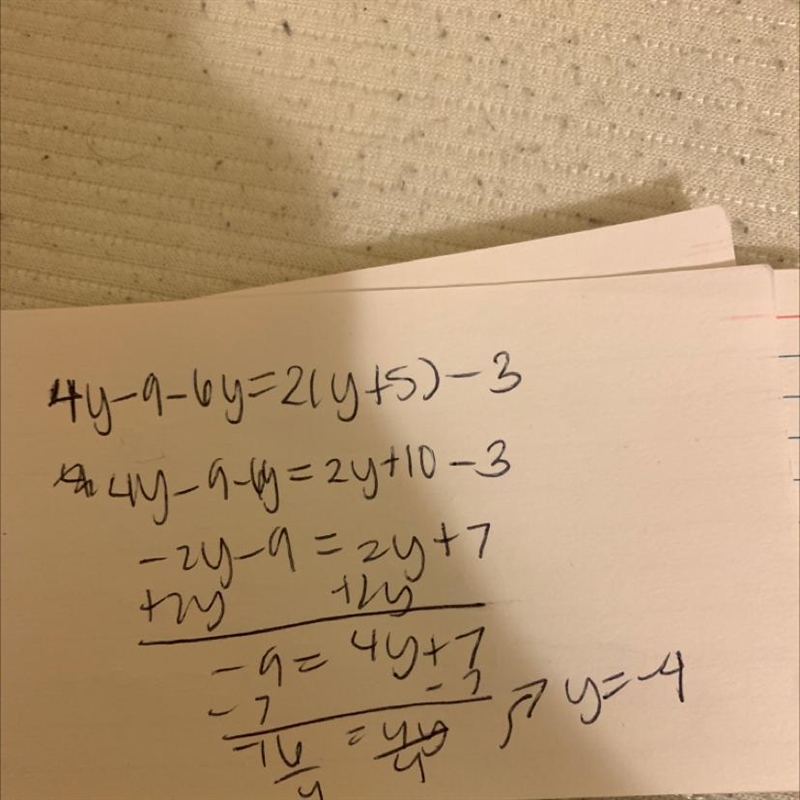 4y-9-6y=2(y+5)-3
4y-9-6y=2y+10-3
-2y-9=2y+7
+2y +2y
-9=4y+7
-7 -7 → y=-4
-16/4 = 4y/4